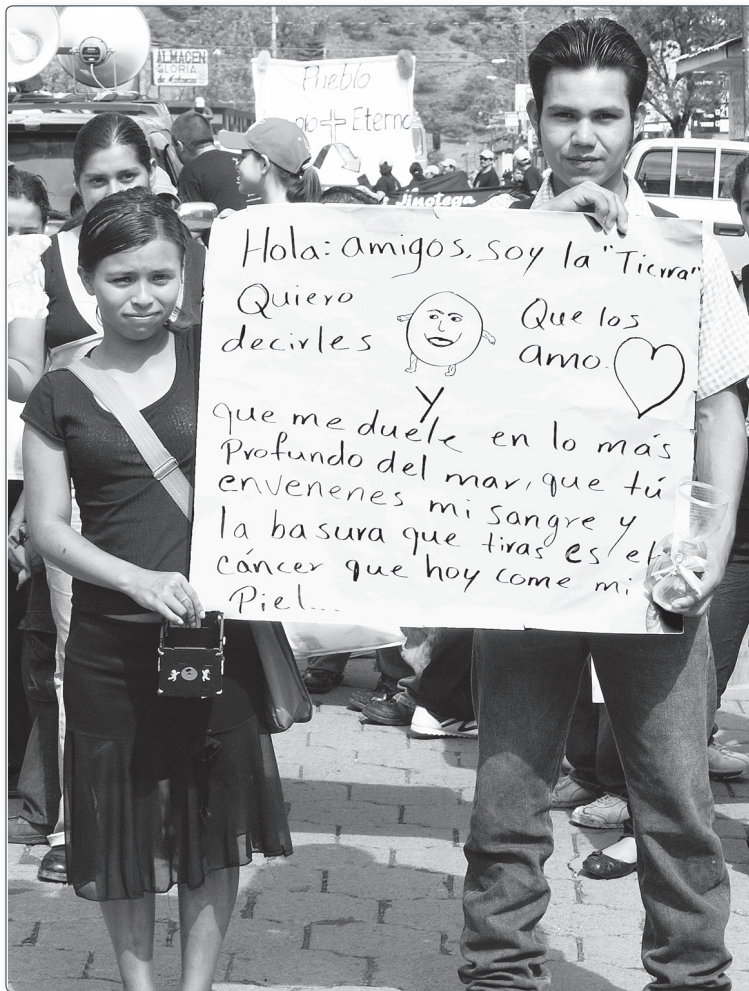 ALMACEN
GLORIA
Pueblo
Eterno
Jinotega
Hola: amigos, soy la "Tierra"
Quiero
decirles
Que los
amo.
y
que me duele en lo más
Profundo del mar, que tú
envenenes mi sangre y
la basura que tiras es el
cáncer que hoy come mi
Piel...